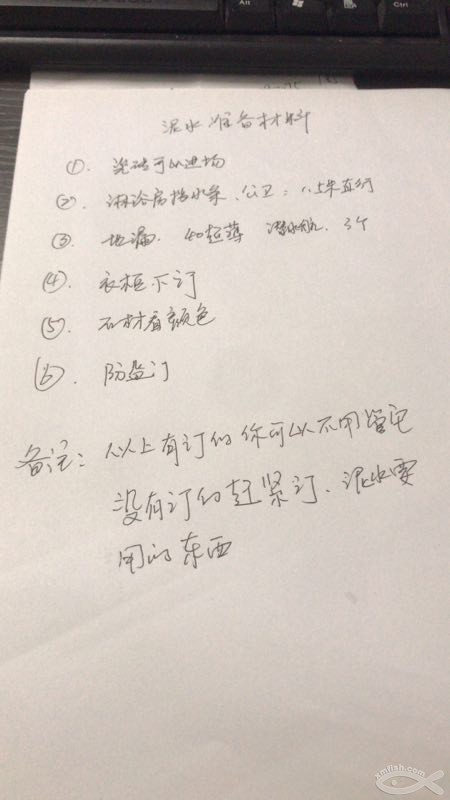 Alt
Ctrl
泥水准备材料
①. 瓷砖可以进场
②. 淋浴房挡水条、公卫:1.5米直行
③. 地漏. 40超薄 潜水艇. 3个
④. 衣柜下订
⑤. 石材看颜色
⑥. 防盗门
备注:以上有订的你可以不用管它
没有订的赶紧订、泥水要
用的东西
xmfish.com